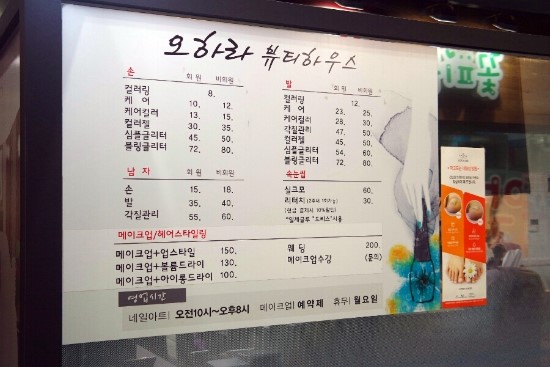 오하라 뷰티하우스
손 회원 비회원
컬러링 8.
케 어 10. 12.
케어컬러 13. 15.
컬러젤 30. 35.
심플글리터 45. 50.
블링글리터 72. 80.
발 회원 비회원
컬러링 12.
케 어 23. 25.
케어컬러 28. 30.
각질관리 47. 50.
심플글리터 54. 60.
블링글리터 72. 80.
남 자 회원 비회원
손 15. 18.
발 35. 40.
각질관리 55. 60.
속눈썹
실크모 60.
리터치 30.
메이크업/헤어스타일링
메이크업+업스타일 150.
메이크업+볼륨드라이 130.
메이크업+아이롱드라이 100.
웨 딩 200.
메이크업수강 (문의)
영업시간
네일아트| 오전10시~오후8시 메이크업| 예약제 휴무| 월요일